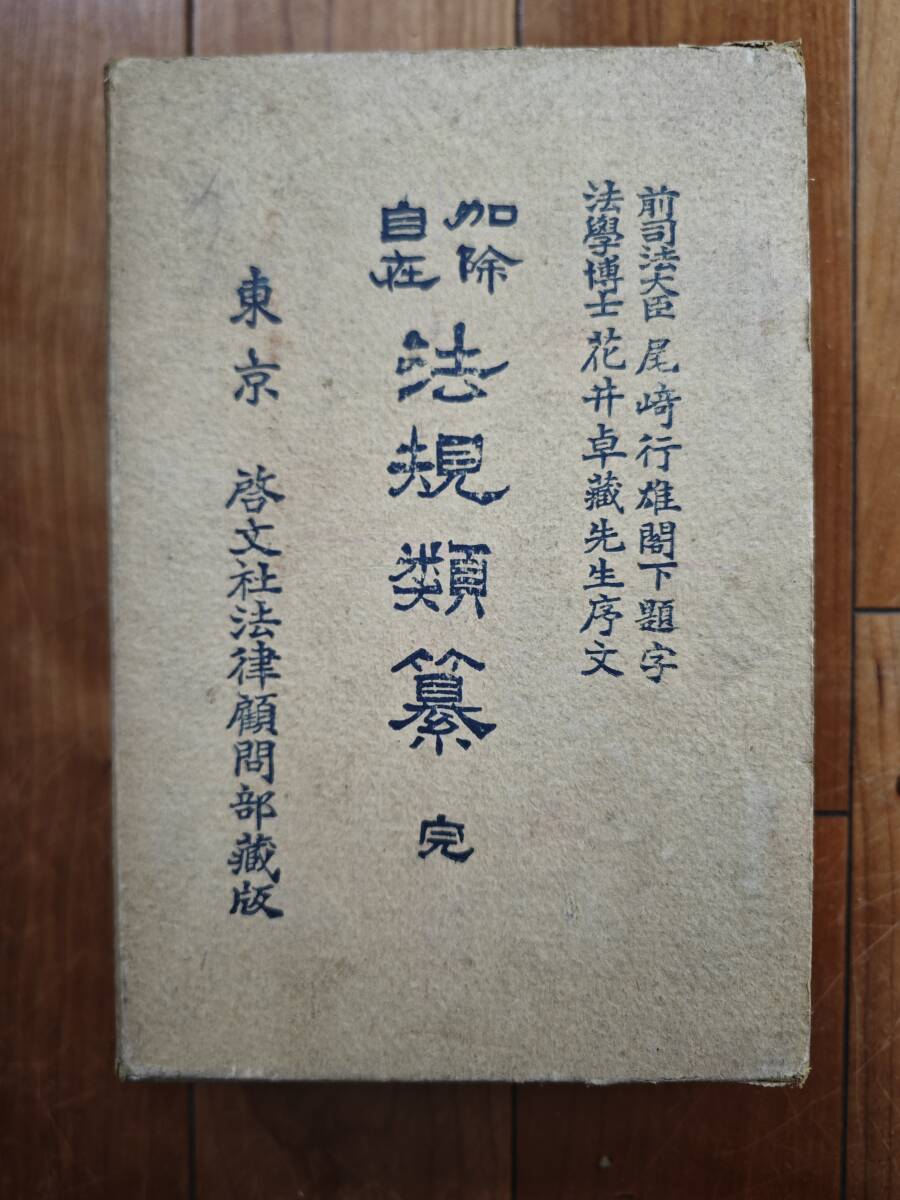 前司法大臣 尾﨑行雄閣下題字
法學博士 花井卓藏先生序文
加除
自在
法規類纂 完
東京 啓文社法律顧問部藏版